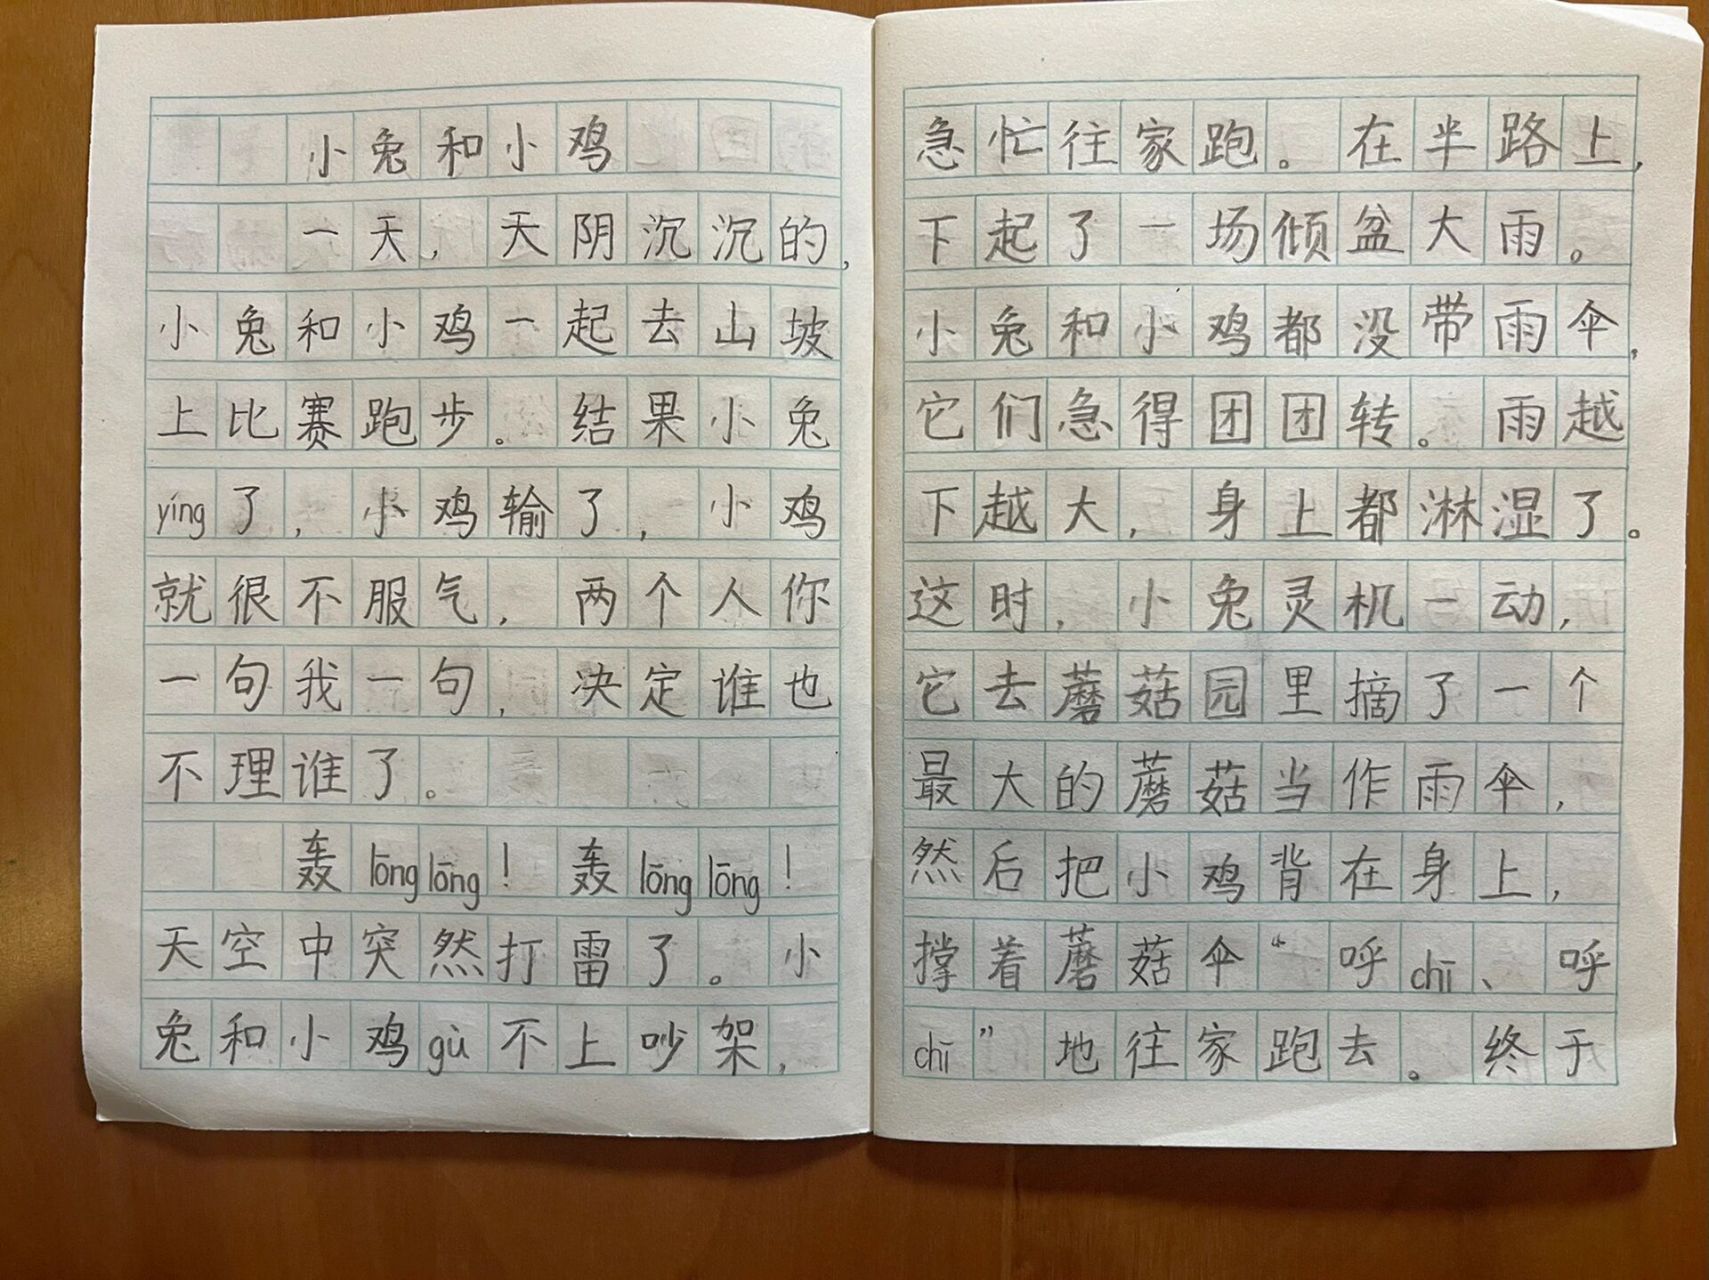 小兔和小鸡
一天，天阴沉沉的，
小兔和小鸡一起去山坡
上比赛跑步。结果小兔
yíng了，小鸡输了，小鸡
就很不服气，两个人你
一句我一句，决定谁也
不理谁了。
轰lōnglōng！轰lōnglōng！
天空中突然打雷了。小
兔和小鸡gù不上吵架，
急忙往家跑。在半路上，
下起了一场倾盆大雨。
小兔和小鸡都没带雨伞，
它们急得团团转。雨越
下越大，身上都淋湿了。
这时，小兔灵机一动，
它去蘑菇园里摘了一个
最大的蘑菇当作雨伞，
然后把小鸡背在身上，
撑着蘑菇伞“呼chī、呼
chī”地往家跑去。终于